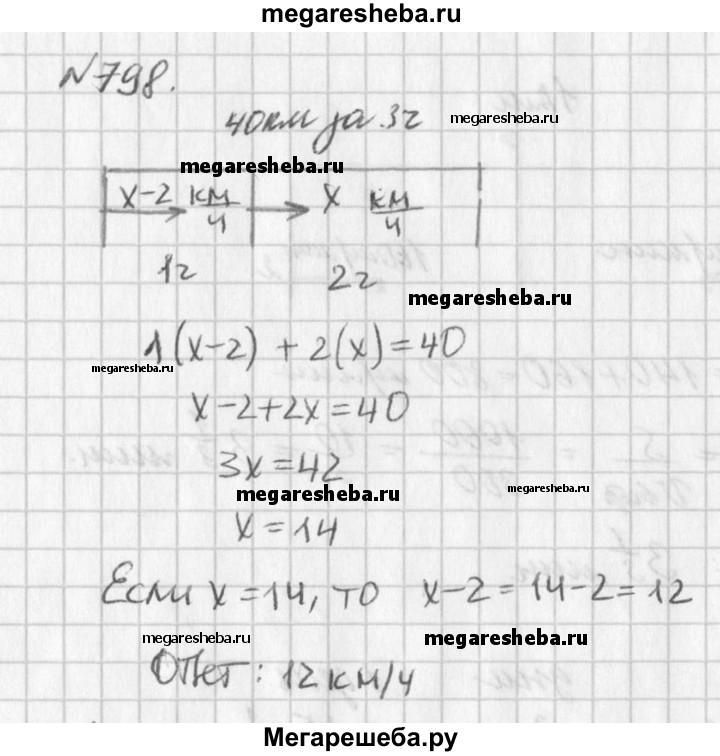 megaresheba.ru
№798.
40км за 3ч megaresheba.ru
megaresheba.ru
x-2 км/ч x км/ч
1ч 2ч
megaresheba.ru
1(x-2) + 2(x) = 40
megaresheba.ru
x-2+2x=40
3x=42
megaresheba.ru megaresheba.ru
x=14
Если x=14, то x-2=14-2=12
megaresheba.ru megaresheba.ru
Ответ: 12км/ч
Мегарешеба.ру